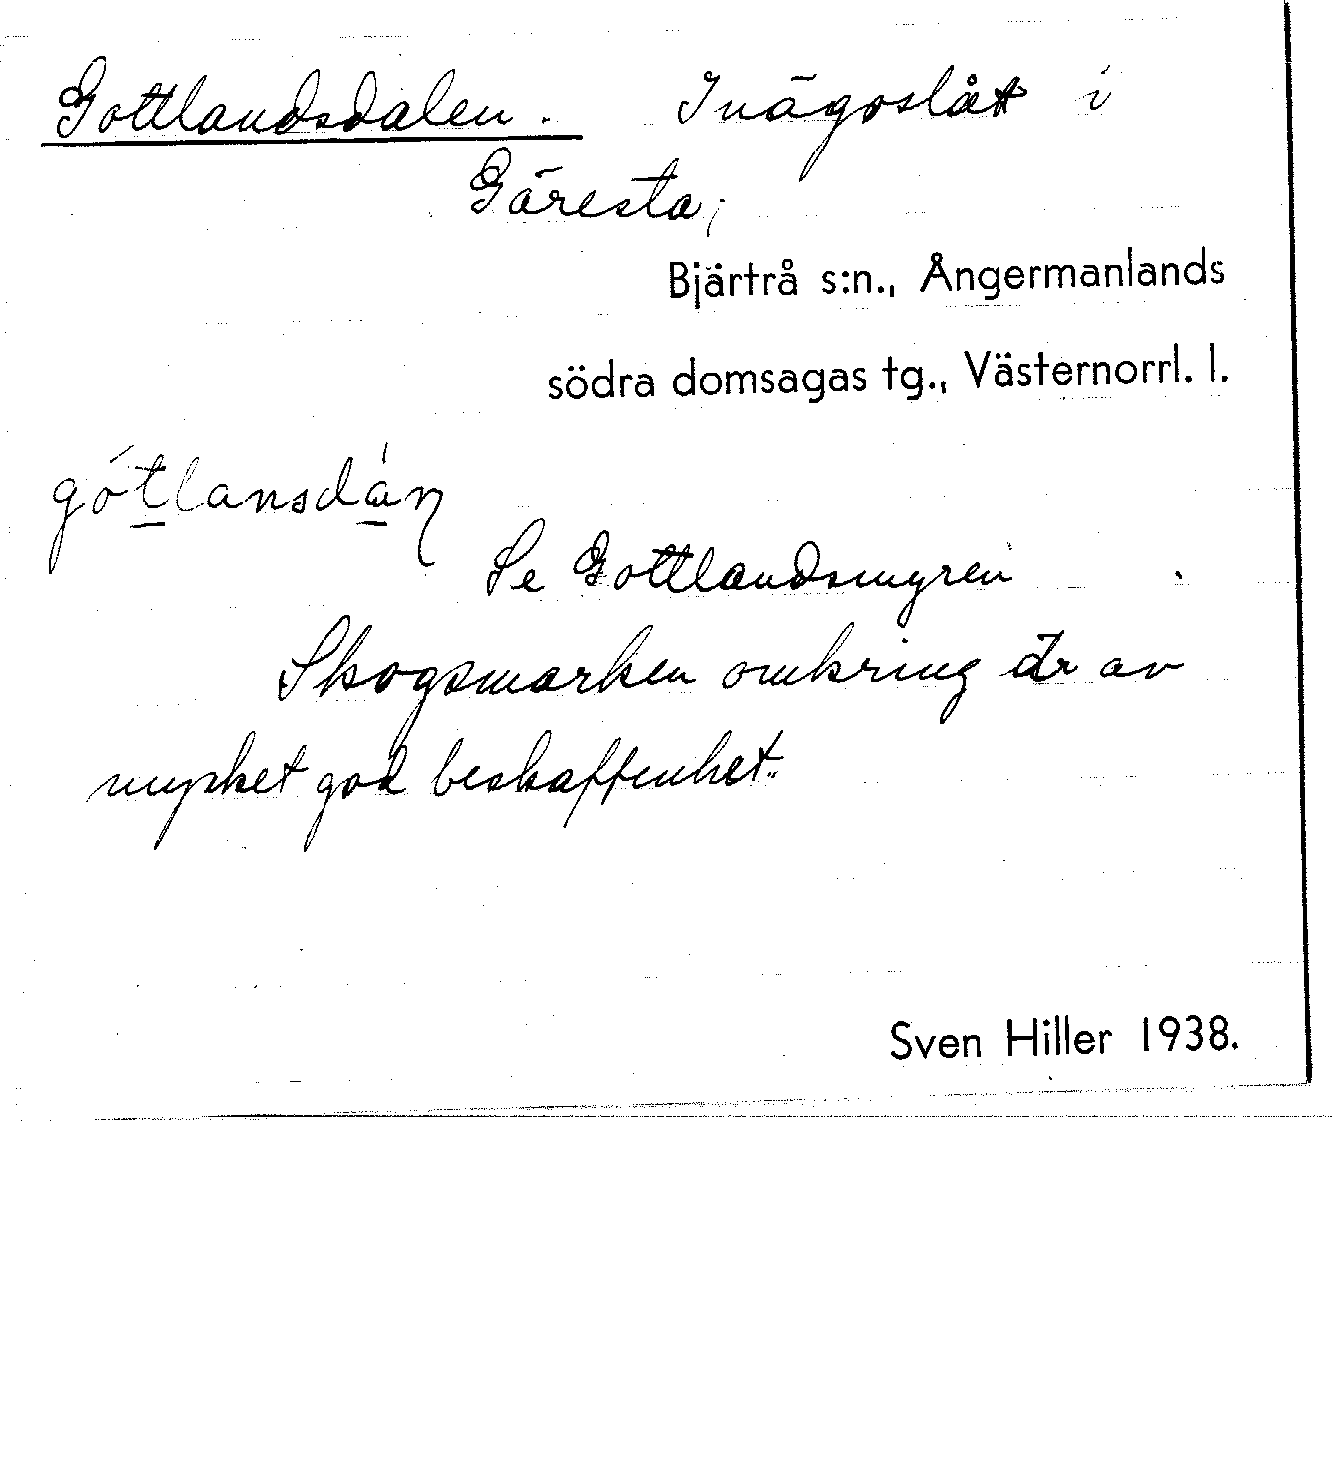 Gottlandsdalen. Inägoslåt i
Gäresta,
Bjärtrå s:n., Ångermanlands
södra domsagas tg., Västernorrl. l.
gótlansdáɳ
Se Gottlandsmyren
Skogsmarken omkring är av
mycket god beskaffenhet.
Sven Hiller 1938.